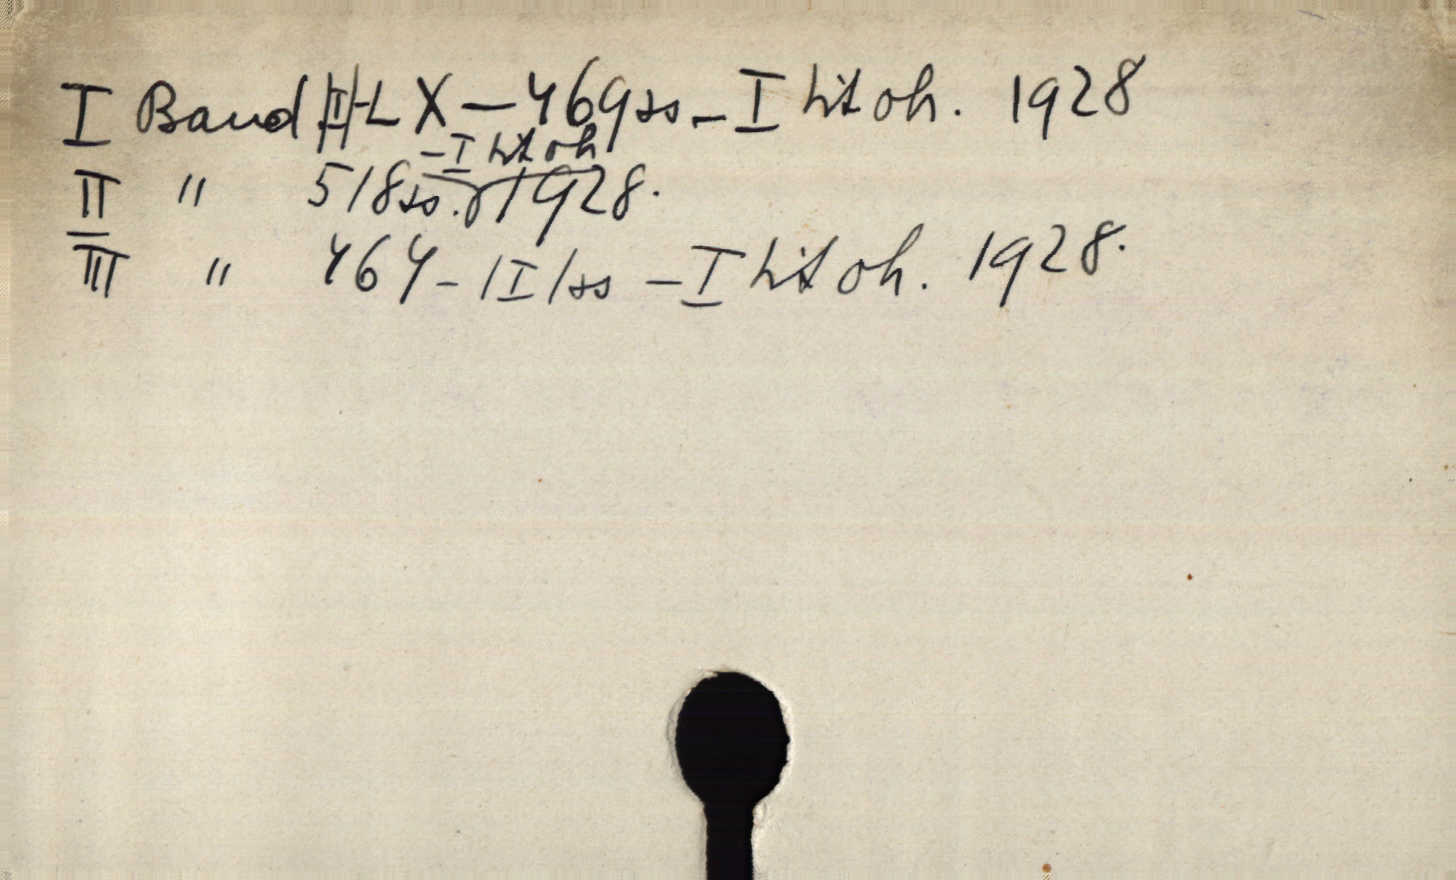 I Band |II|-LX — 469 ss. — I lit oh. 1928
II " 518 ss. — I lit oh 1928.
III " 464 - |I| ss — I lit oh. 1928.